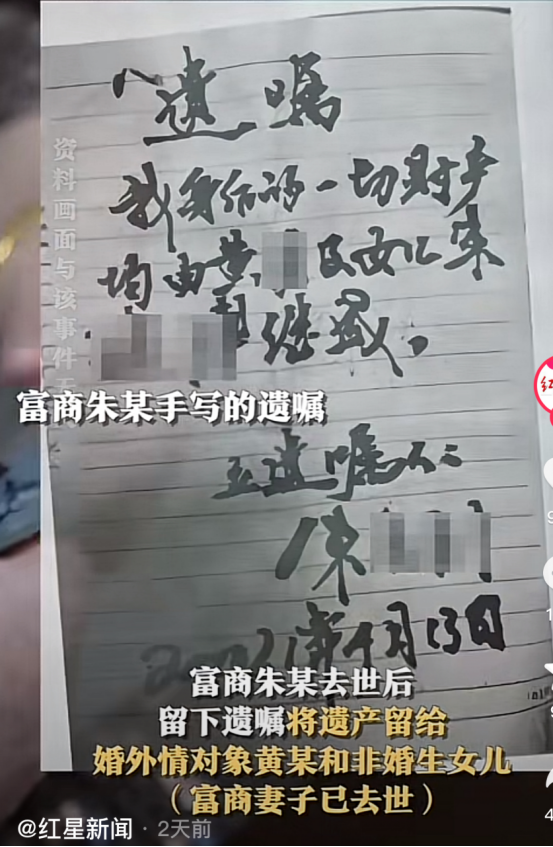 遗嘱
我身后的一切财产
均由黄 及女儿朱
继承。
立遗嘱人：
朱
2021年 月13日
资料画面与该事件无
富商朱某手写的遗嘱
富商朱某去世后
留下遗嘱将遗产留给
婚外情对象黄某和非婚生女儿
（富商妻子已去世）
@红星新闻 · 2天前